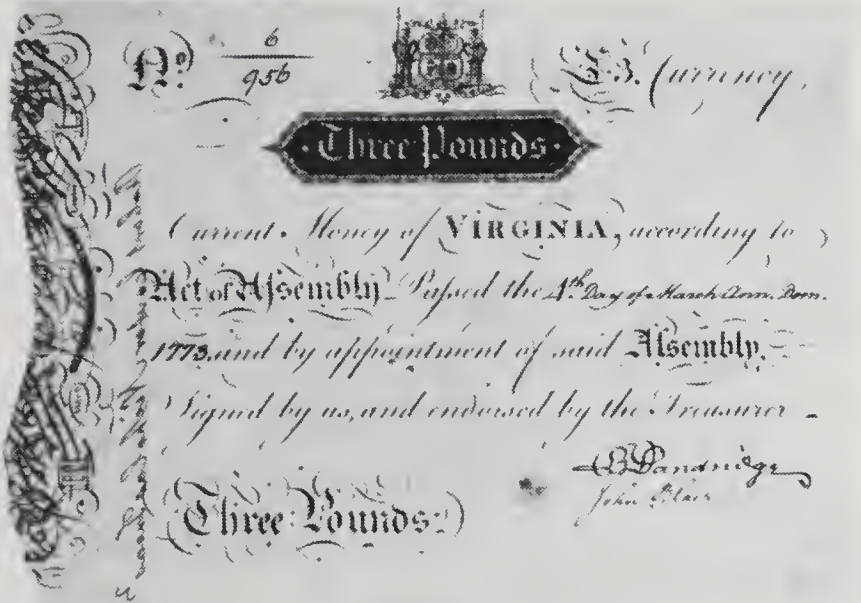 No. 6
956
£3. Currency,
·Three Pounds·
Current Money of VIRGINIA, according to
Act of Assembly Passed the 4th Day of March Ann. Dom.
1773 and by appointment of said Assembly,
Signed by us, and endorsed by the Treasurer
B Dandridge
John Blair
Three Pounds